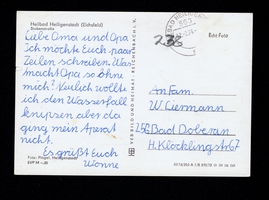 Heilbad Heiligenstadt (Eichsfeld)
Stubenstraße
Liebe Oma und Opa
Ich möchte Euch paar
Zeilen schreiben. Was
macht Opa so ohne
mich? Neulich wollte
ich den Wasserfall
knipsen aber da
ging mein Aparat
nicht.
Es grüßt Euch
Wonne
Foto: Pingel, Heiligenstadt
EVP M -,20
VERBILD UND HEIMAT REICHENBACH
236
Echt Foto
An Fam.
W. Liermann
256 Bad Doberan
H. Klöcklingstr. 67